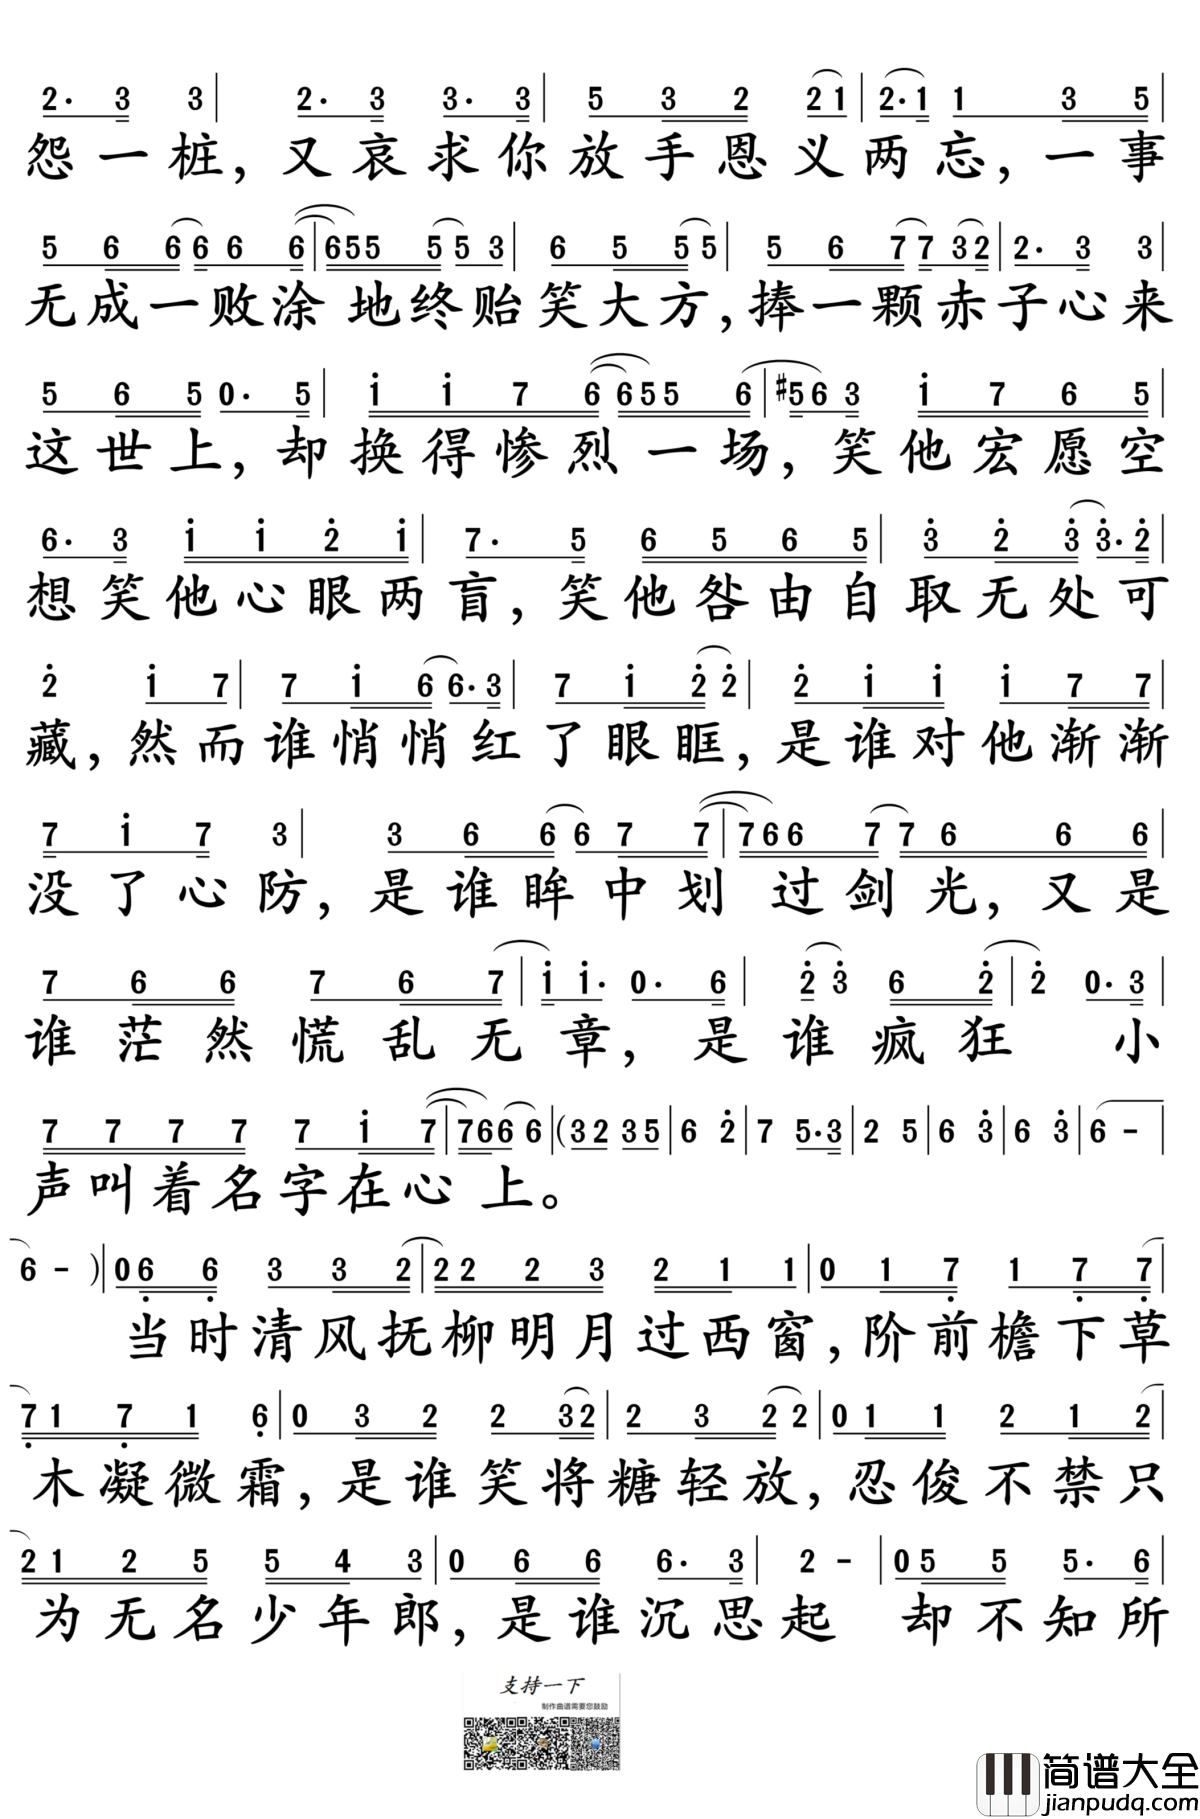 2· 3 3 | 2· 3 3· 3 | 5 3 2 21 | 2·1 | 1 3 5 |
怨一桩，又哀求你放手恩义两忘，一事
5 6 66 6 6 | 655 55 3 | 6 5 55 | 5 6 77 32 | 2· 3 3 |
无成一败涂地终贻笑大方，捧一颗赤子心来
5 6 5 0· 5 | i i 7 6655 6 | #56 3 i 7 6 5 |
这世上，却换得惨烈一场，笑他宏愿空
6· 3 i i 2 i | 7· 5 6 5 6 5 | 3 2 33·2 |
想笑他心眼两盲，笑他咎由自取无处可
2 i 7 | 7 i 66·3 | 7 i 22 | 2 i i i 7 7 |
藏，然而谁悄悄红了眼眶，是谁对他渐渐
7 i 7 3 | 3 6 66 7 7 | 766 77 6 6 6 |
没了心防，是谁眸中划过剑光，又是
7 6 6 7 6 7 | i i· 0· 6 | 2 3 6 2 | 2 0· 3 |
谁茫然慌乱无章，是谁疯狂 小
7 7 7 7 7 i 7 | 766 6 | (32 35 | 6 2 | 7 5·3 | 2 5 | 6 3 | 6 3 | 6 - |
声叫着名字在心上。
6 - ) | 06 6 3 3 2 | 22 2 3 2 1 1 | 0 1 7 1 7 7 |
当时清风抚柳明月过西窗，阶前檐下草
71 7 1 6 | 0 3 2 2 32 | 2 3 22 | 01 1 2 1 2 |
木凝微霜，是谁笑将糖轻放，忍俊不禁只
21 2 5 5 4 3 | 0 6 6 6· 3 | 2 - | 05 5 5· 6 |
为无名少年郎，是谁沉思起 却不知所
支持一下
制作曲谱需要您鼓励
简谱大全
jianpudq.com